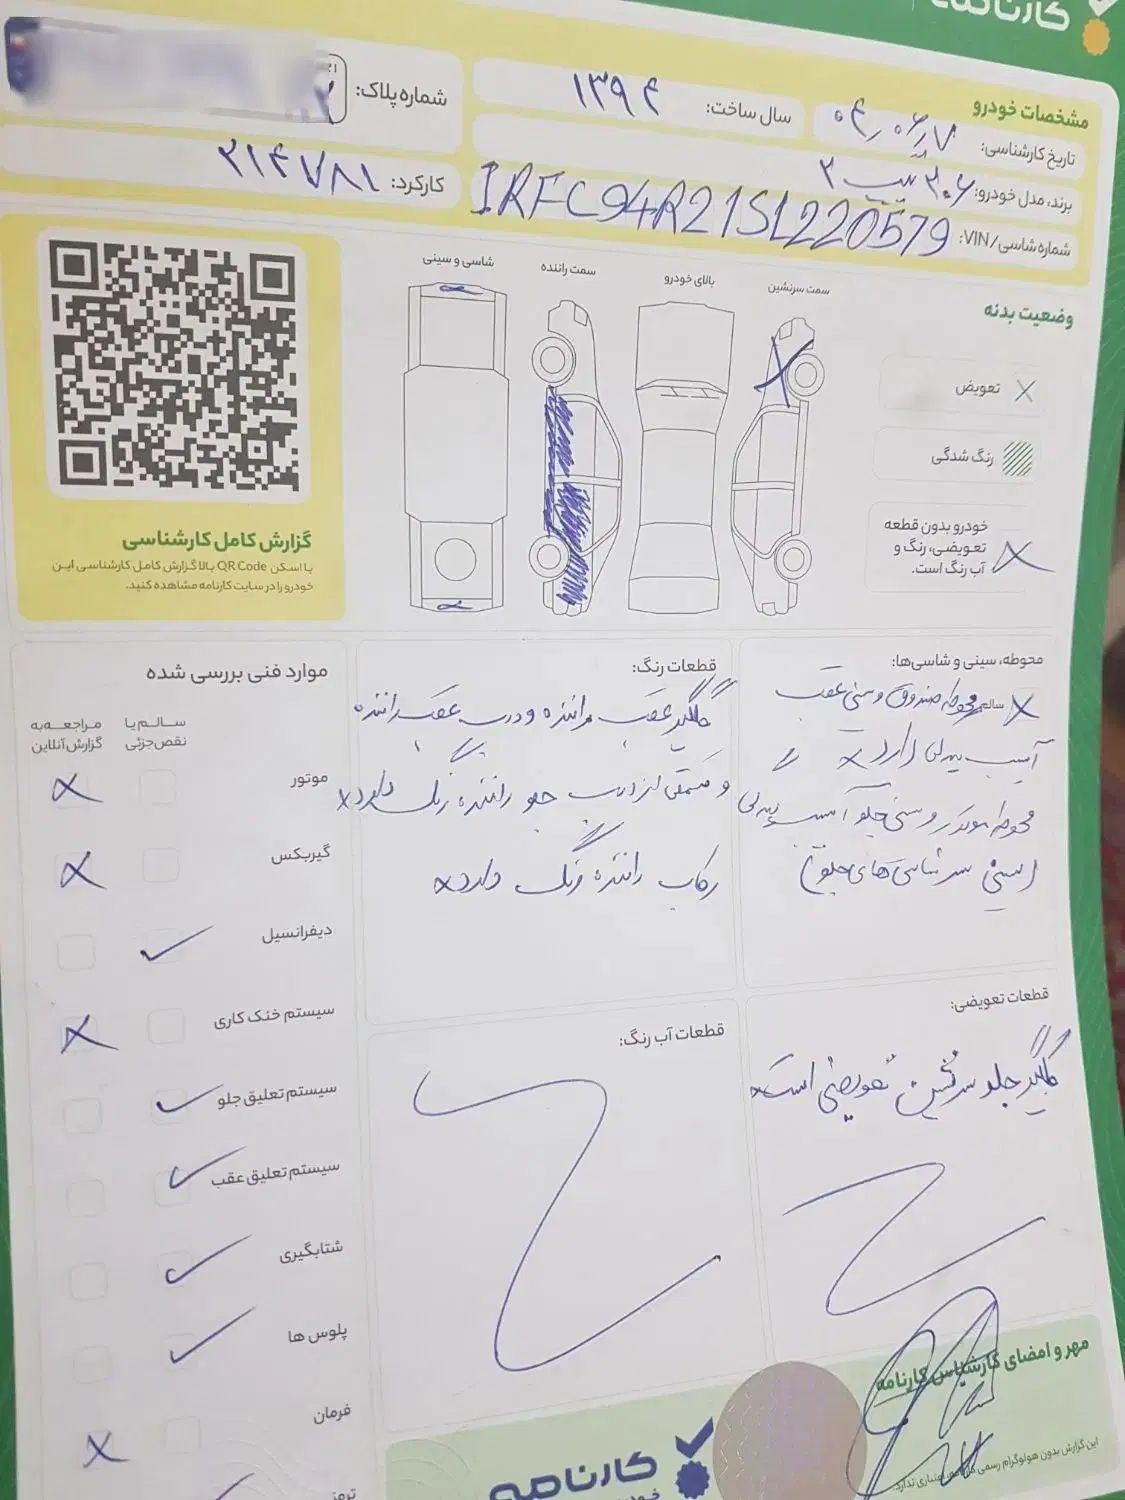 کارنامه
مشخصات خودرو
تاریخ کارشناسی: ۰۴،۰۶،۰۷
سال ساخت: ۱۳۹۴
شماره پلاک:
برند، مدل خودرو: ۲۰۶ تیپ ۲
کارکرد: ۲۱۴۷۸۱
شماره شاسی/VIN: IRFC94R21SL220579
وضعیت بدنه
تعویض
رنگ شدگی
خودرو بدون قطعه
تعویضی، رنگ و
آب رنگ است.
سمت سرنشین
بالای خودرو
سمت راننده
شاسی و سینی
گزارش کامل کارشناسی
با اسکن QR Code بالا گزارش کامل کارشناسی این
خودرو را در سایت کارنامه مشاهده کنید.
محوطه، سینی و شاسی‌ها:
سالم
محوطه صندوق و سینی عقب
آسیب بدنی دارد
محوطه موتور و سینی جلو آسیب بدنی
(سینی سر شاسی های جلو)
قطعات رنگ:
گلگیر عقب راننده و درب عقب راننده
و قسمتی از درب جلو راننده رنگ دارد
رکاب راننده رنگ دارد
قطعات تعویضی:
گلگیر جلو سرنشین تعویضی است
قطعات آب رنگ:
موارد فنی بررسی شده
سالم یا
نقص جزئی
مراجعه به
گزارش آنلاین
موتور
گیربکس
دیفرانسیل
سیستم خنک کاری
سیستم تعلیق جلو
سیستم تعلیق عقب
شتابگیری
پلوس ها
فرمان
ترمز
مهر و امضای کارشناس کارنامه
این گزارش بدون هولوگرام رسمی کارنامه، اعتباری ندارد.
کارنامه